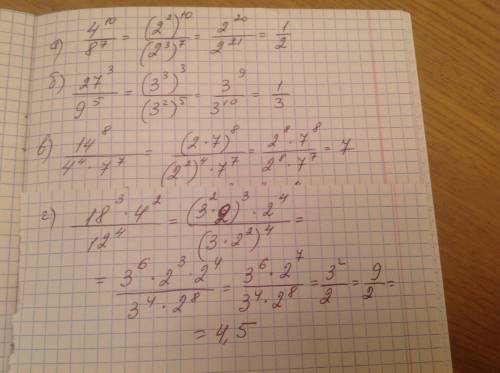 а) 4^10 / 8^7 = (2^2)^10 / (2^3)^7 = 2^20 / 2^21 = 1/2
б) 27^3 / 9^5 = (3^3)^3 / (3^2)^5 = 3^9 / 3^10 = 1/3
в) 14^8 / 4^4 · 7^7 = (2 · 7)^8 / (2^2)^4 · 7^7 = 2^8 · 7^8 / 2^8 · 7^7 = 7
г) 18^3 · 4^2 / 12^4 = (3^2 · 2)^3 · 2^4 / (3 · 2^2)^4 =
= 3^6 · 2^3 · 2^4 / 3^4 · 2^8 = 3^6 · 2^7 / 3^4 · 2^8 = 3^2 / 2 = 9/2 =
= 4,5